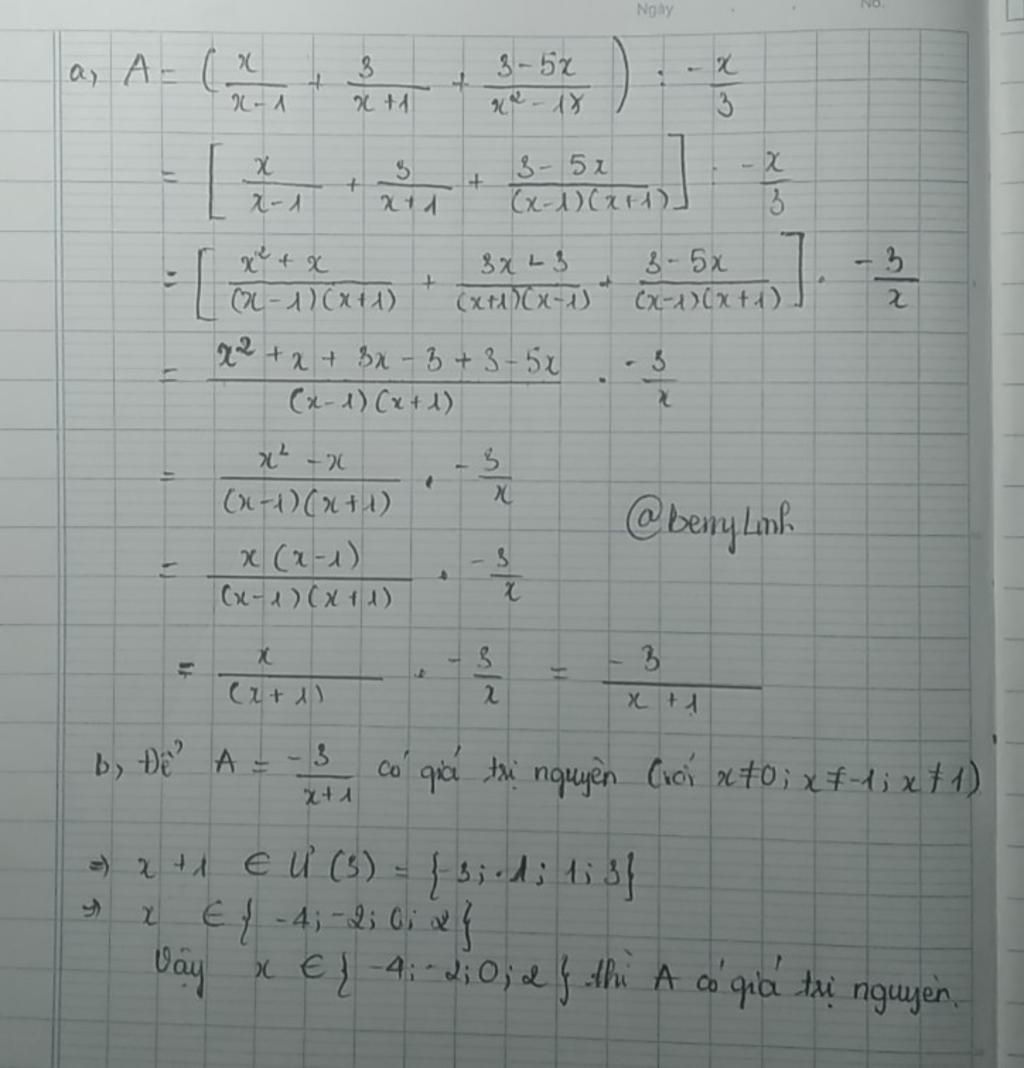 Ngày No.
a, A = (x/(x-1) + 3/(x+1) + (3-5x)/(x²-1)) : -x/3
= [x/(x-1) + 3/(x+1) + (3-5x)/((x-1)(x+1))] : -x/3
= [(x²+x)/((x-1)(x+1)) + (3x-3)/((x+1)(x-1)) + (3-5x)/((x-1)(x+1))] . -3/x
= (x²+x+3x-3+3-5x)/((x-1)(x+1)) . -3/x
= (x²-x)/((x-1)(x+1)) . -3/x
@berryLinh
= x(x-1)/((x-1)(x+1)) . -3/x
= x/(x+1) . -3/x = -3/(x+1)
b, Để A = -3/(x+1) có giá trị nguyên (với x≠0; x≠-1; x≠1)
=> x+1 ∈ Ư(3) = {-3; -1; 1; 3}
=> x ∈ {-4; -2; 0; 2}
Vậy x ∈ {-4; -2; 0; 2} thì A có giá trị nguyên.